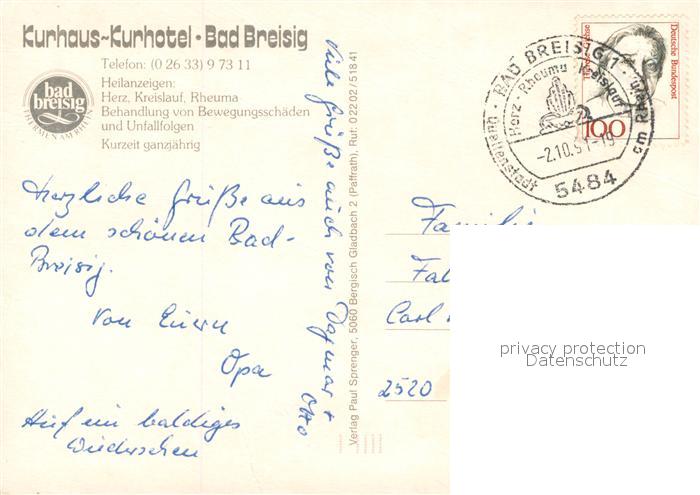 Kurhaus~Kurhotel · Bad Breisig
Telefon: (0 26 33) 9 73 11
Heilanzeigen:
Herz, Kreislauf, Rheuma
Behandlung von Bewegungsschäden
und Unfallfolgen
Kurzeit ganzjährig
bad
breisig
THERMEN AM RHEIN
Herzliche Grüße aus
dem schönen Bad-
Breisig.
Von Euern
Opa
Auf ein baldiges
Wiedersehen
Viele Grüße auch von Dagmar +
Otto
Verlag Paul Sprenger, 5060 Bergisch Gladbach 2 (Paffrath), Ruf: 0 22 02 / 5 18 41
BAD BREISIG 1
Quellenstadt
am Rhein
Herz · Rheuma · Kreislauf
-2.10.91-19
5484
Deutsche Bundespost
100
Familie
Carl
2520
privacy protection
Datenschutz